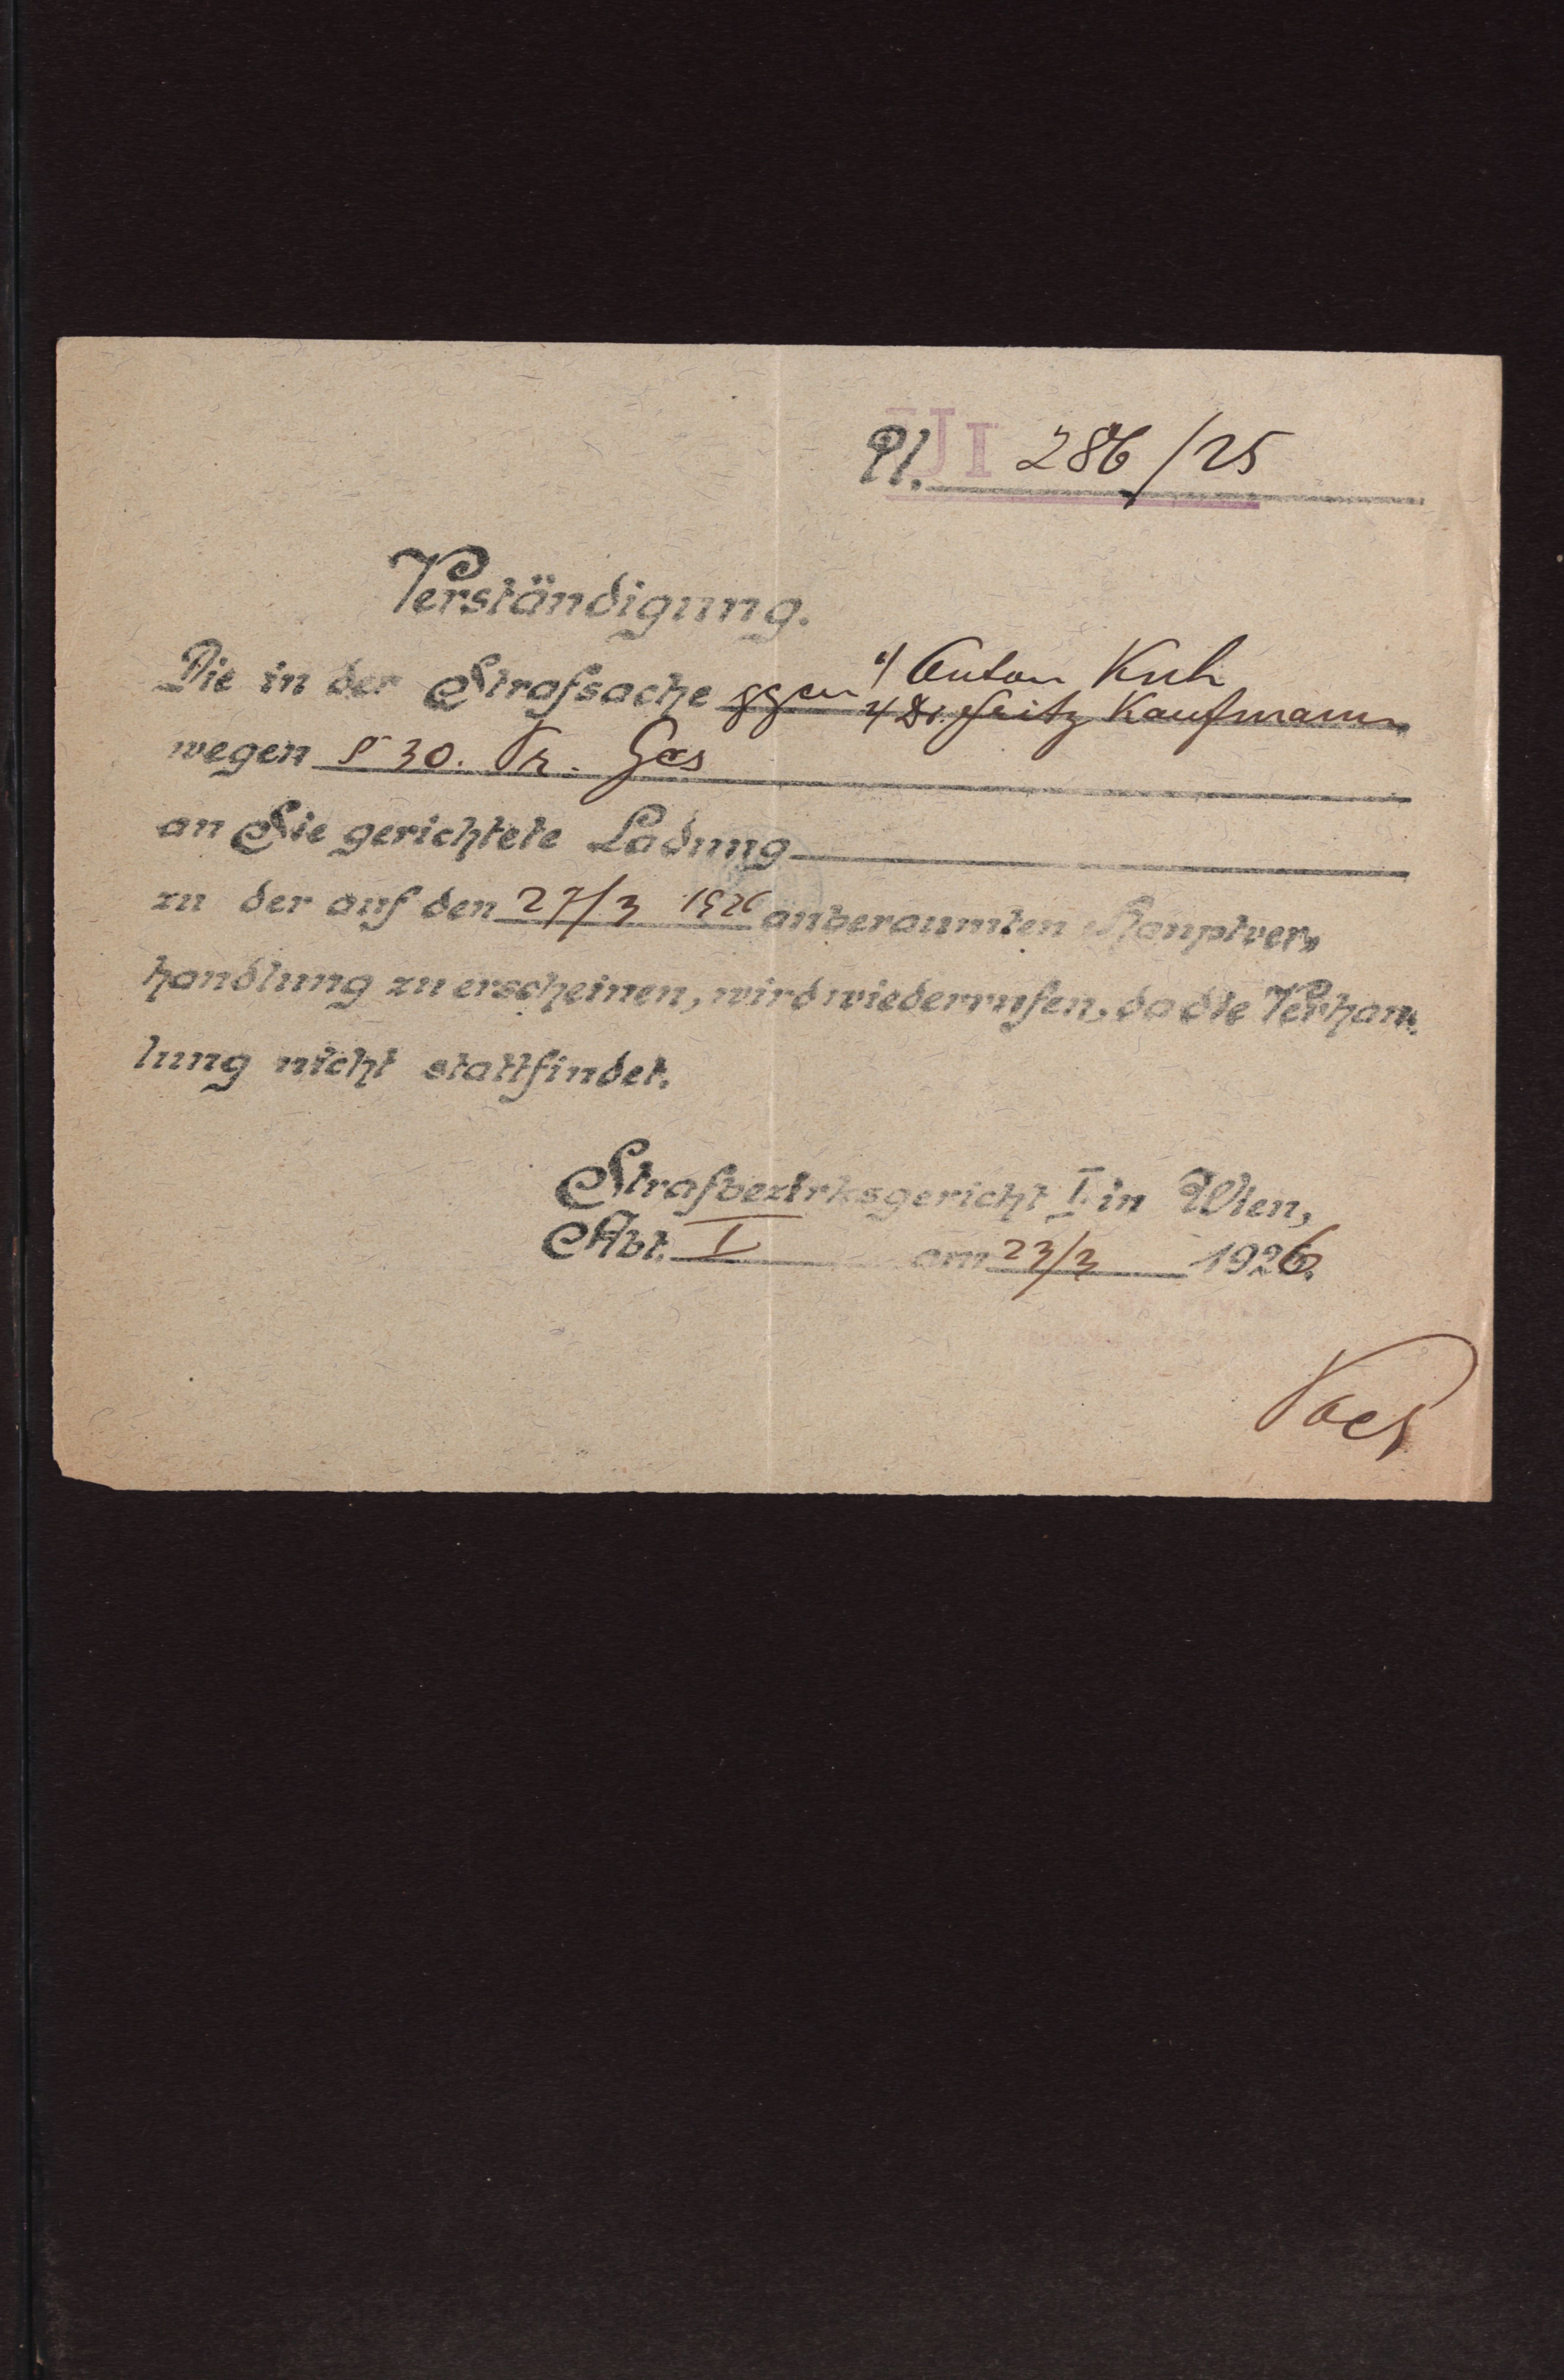 U I 286/25
Verständigung.
Die in der Strafsache ggen 1/ Anton Kuh
2/ Dr. Fritz Kaufmann
wegen § 30. Pr. Ges
an Sie gerichtete Ladung
zu der auf den 27/3 1926 anberaumten Hauptver„
handlung zu erscheinen, wird wiederrufen, da die Verhan„
lung nicht stattfindet.
Strafbezirksgericht I in Wien,
Abt. I am 23/3 1926.